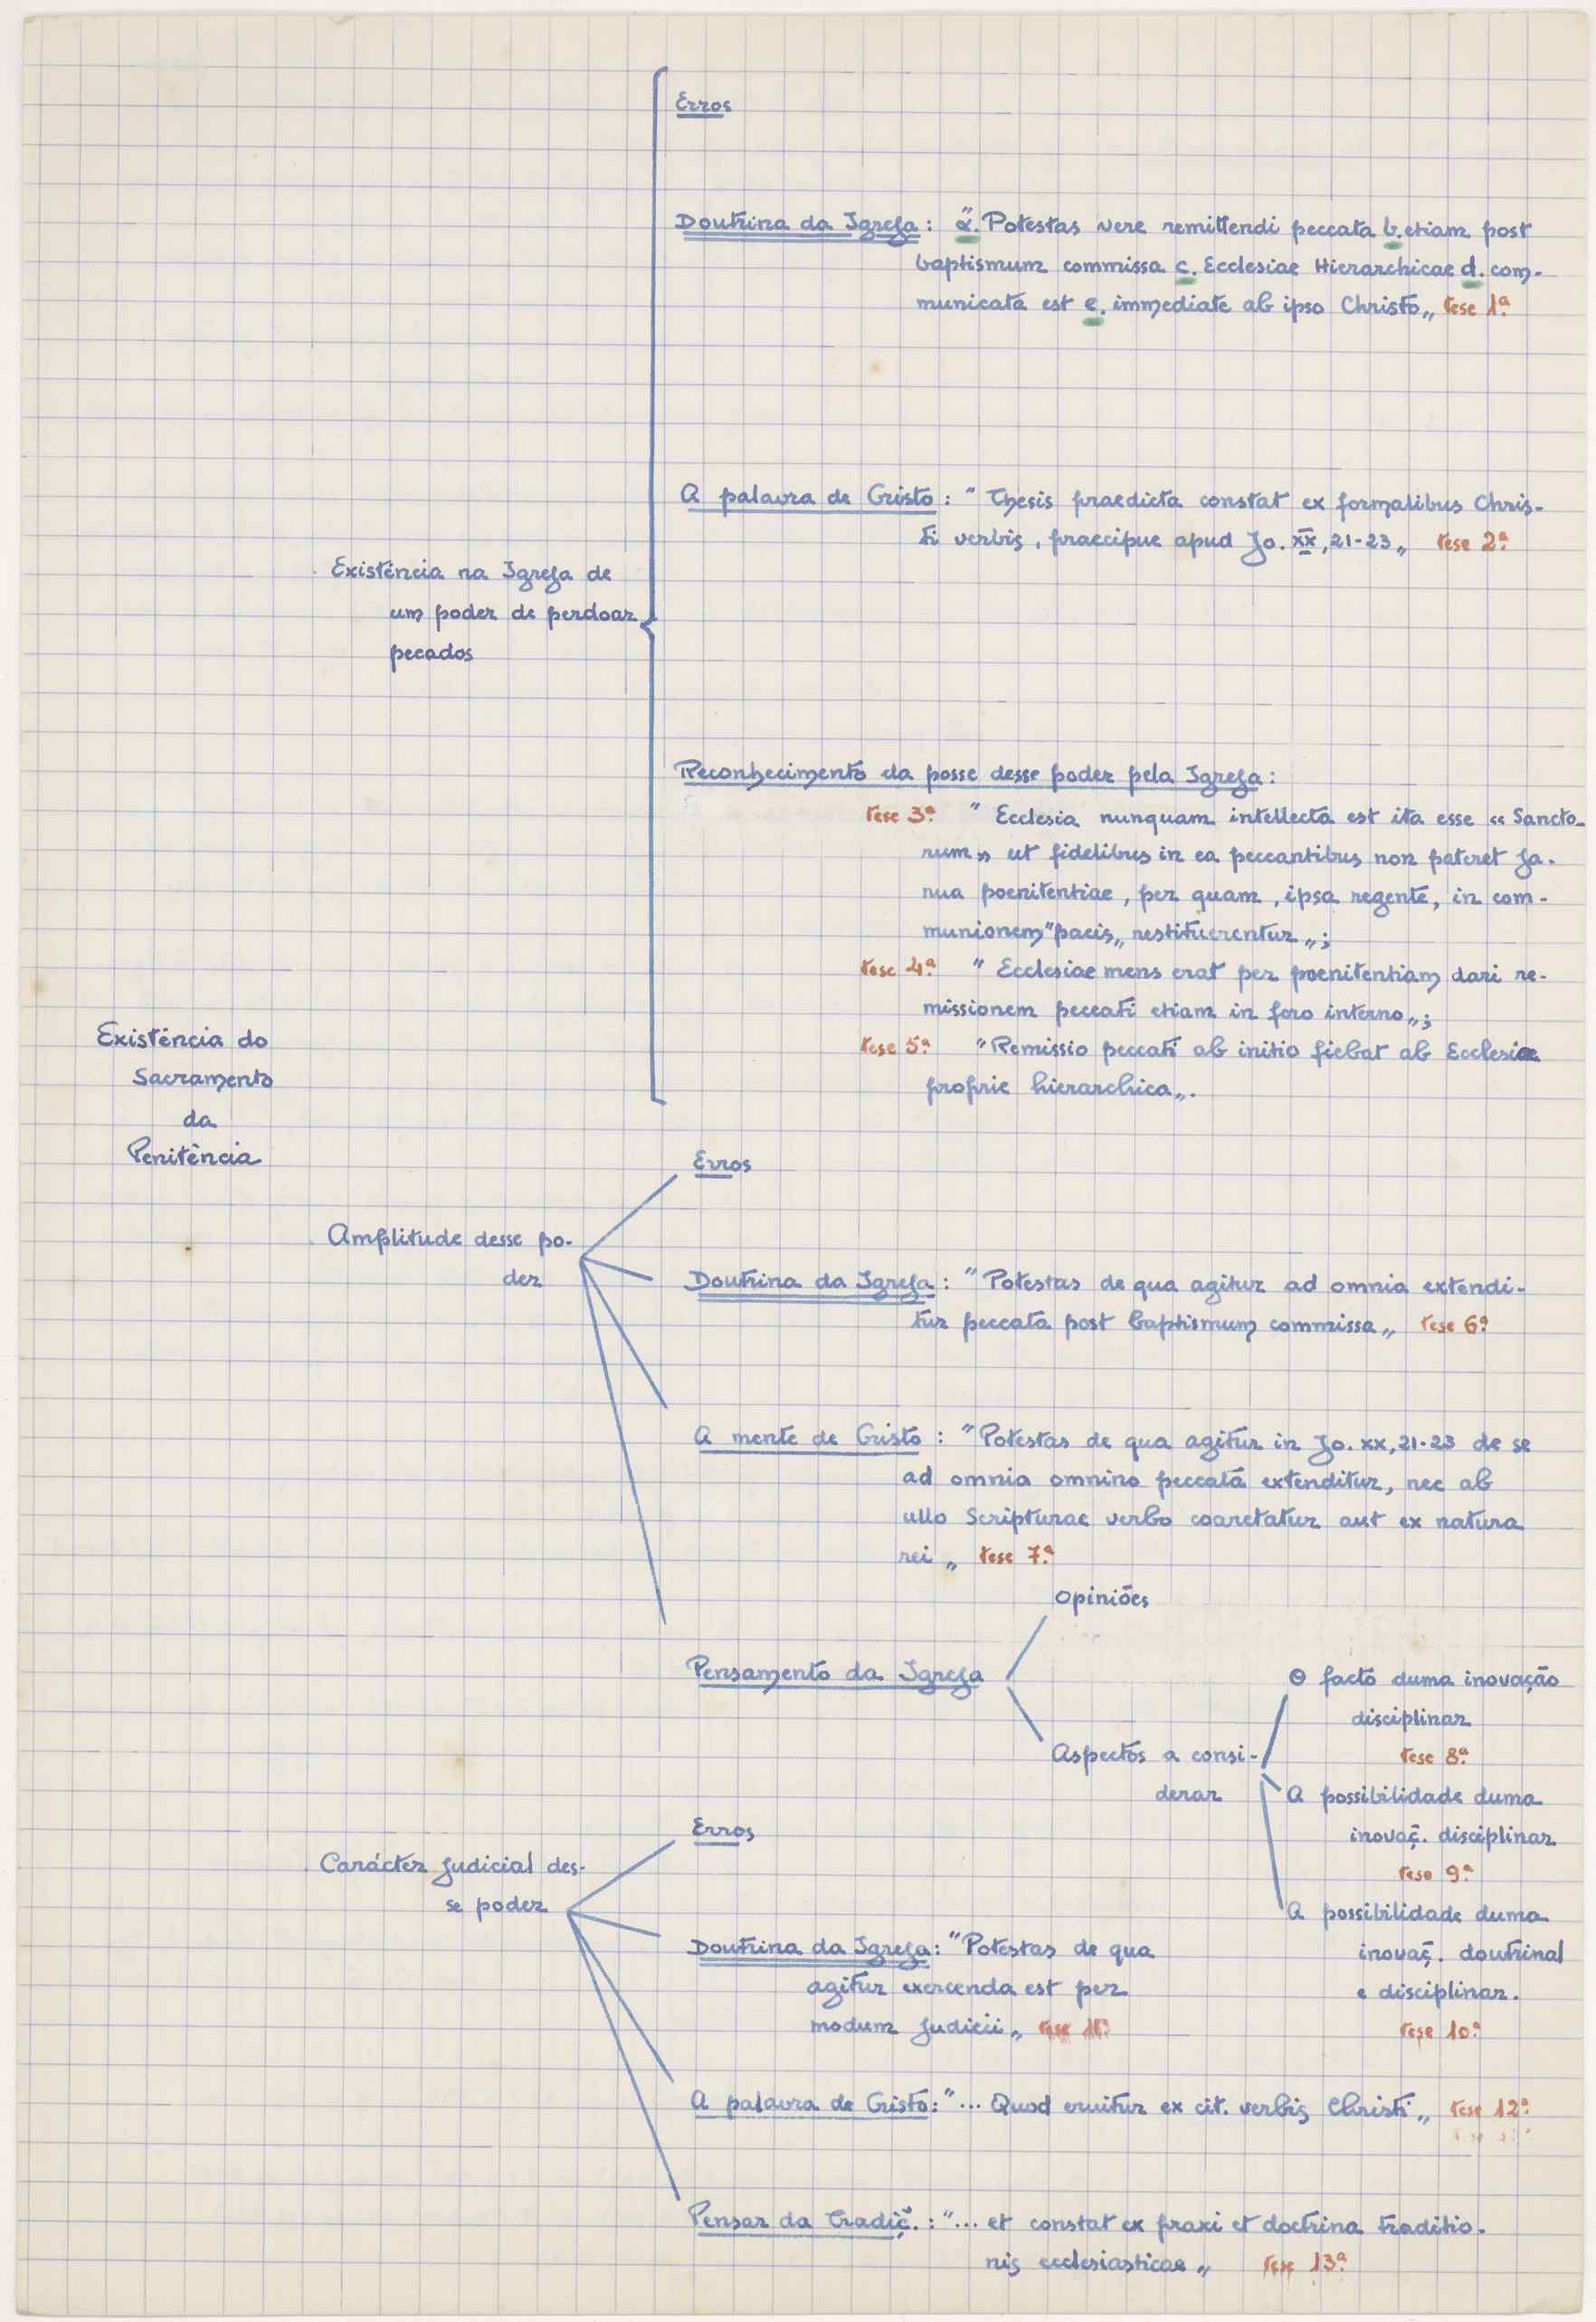 Erros
Doutrina da Igreja: "a. Potestas vere remittendi peccata b. etiam post
baptismum commissa c. Ecclesiae Hierarchicae d. com-
municata est e. immediate ab ipso Christo„ tese 1ª.
A palavra de Cristo: " Thesis praedicta constat ex formalibus Chris-
ti verbis, praecipue apud Jo. XX, 21-23„ tese 2ª.
Existência na Igreja de
um poder de perdoar
pecados
Reconhecimento da posse desse poder pela Igreja:
tese 3ª. " Ecclesia nunquam intellecta est ita esse «Sancto-
rum» ut fidelibus in ea peccantibus non pateret ja-
nua poenitentiae, per quam, ipsa regente, in com-
munionem "pacis„ restituerentur„;
tese 4ª. " Ecclesiae mens erat per poenitentiam dari re-
missionem peccati etiam in foro interno„;
tese 5ª. "Remissio peccati ab initio fiebat ab Ecclesia
proprie hierarchica„.
Existência do
Sacramento
da
Penitência
Erros
Amplitude desse po-
der
Doutrina da Igreja: "Potestas de qua agitur ad omnia extendi-
tur peccata post baptismum commissa„ tese 6ª.
A mente de Cristo: "Potestas de qua agitur in Jo. XX, 21-23 de se
ad omnia omnino peccata extenditur, nec ab
ullo Scripturae verbo coarctatur aut ex natura
rei„ tese 7ª.
Opiniões
Pensamento da Igreja
Aspectos a consi-
derar
O facto duma inovação
disciplinar
tese 8ª.
A possibilidade duma
inovaç. disciplinar
tese 9ª.
A possibilidade duma
inovaç. doutrinal
e disciplinar.
tese 10ª.
Erros
Carácter judicial des-
se poder
Doutrina da Igreja: "Potestas de qua
agitur exercenda est per
modum judicii„ tese 11ª.
A palavra de Cristo: "... Quod eruitur ex cit. verbis Christi„ tese 12ª.
Pensar da Tradiç.: "... et constat ex praxi et doctrina traditio-
nis ecclesiasticae„ tese 13ª.